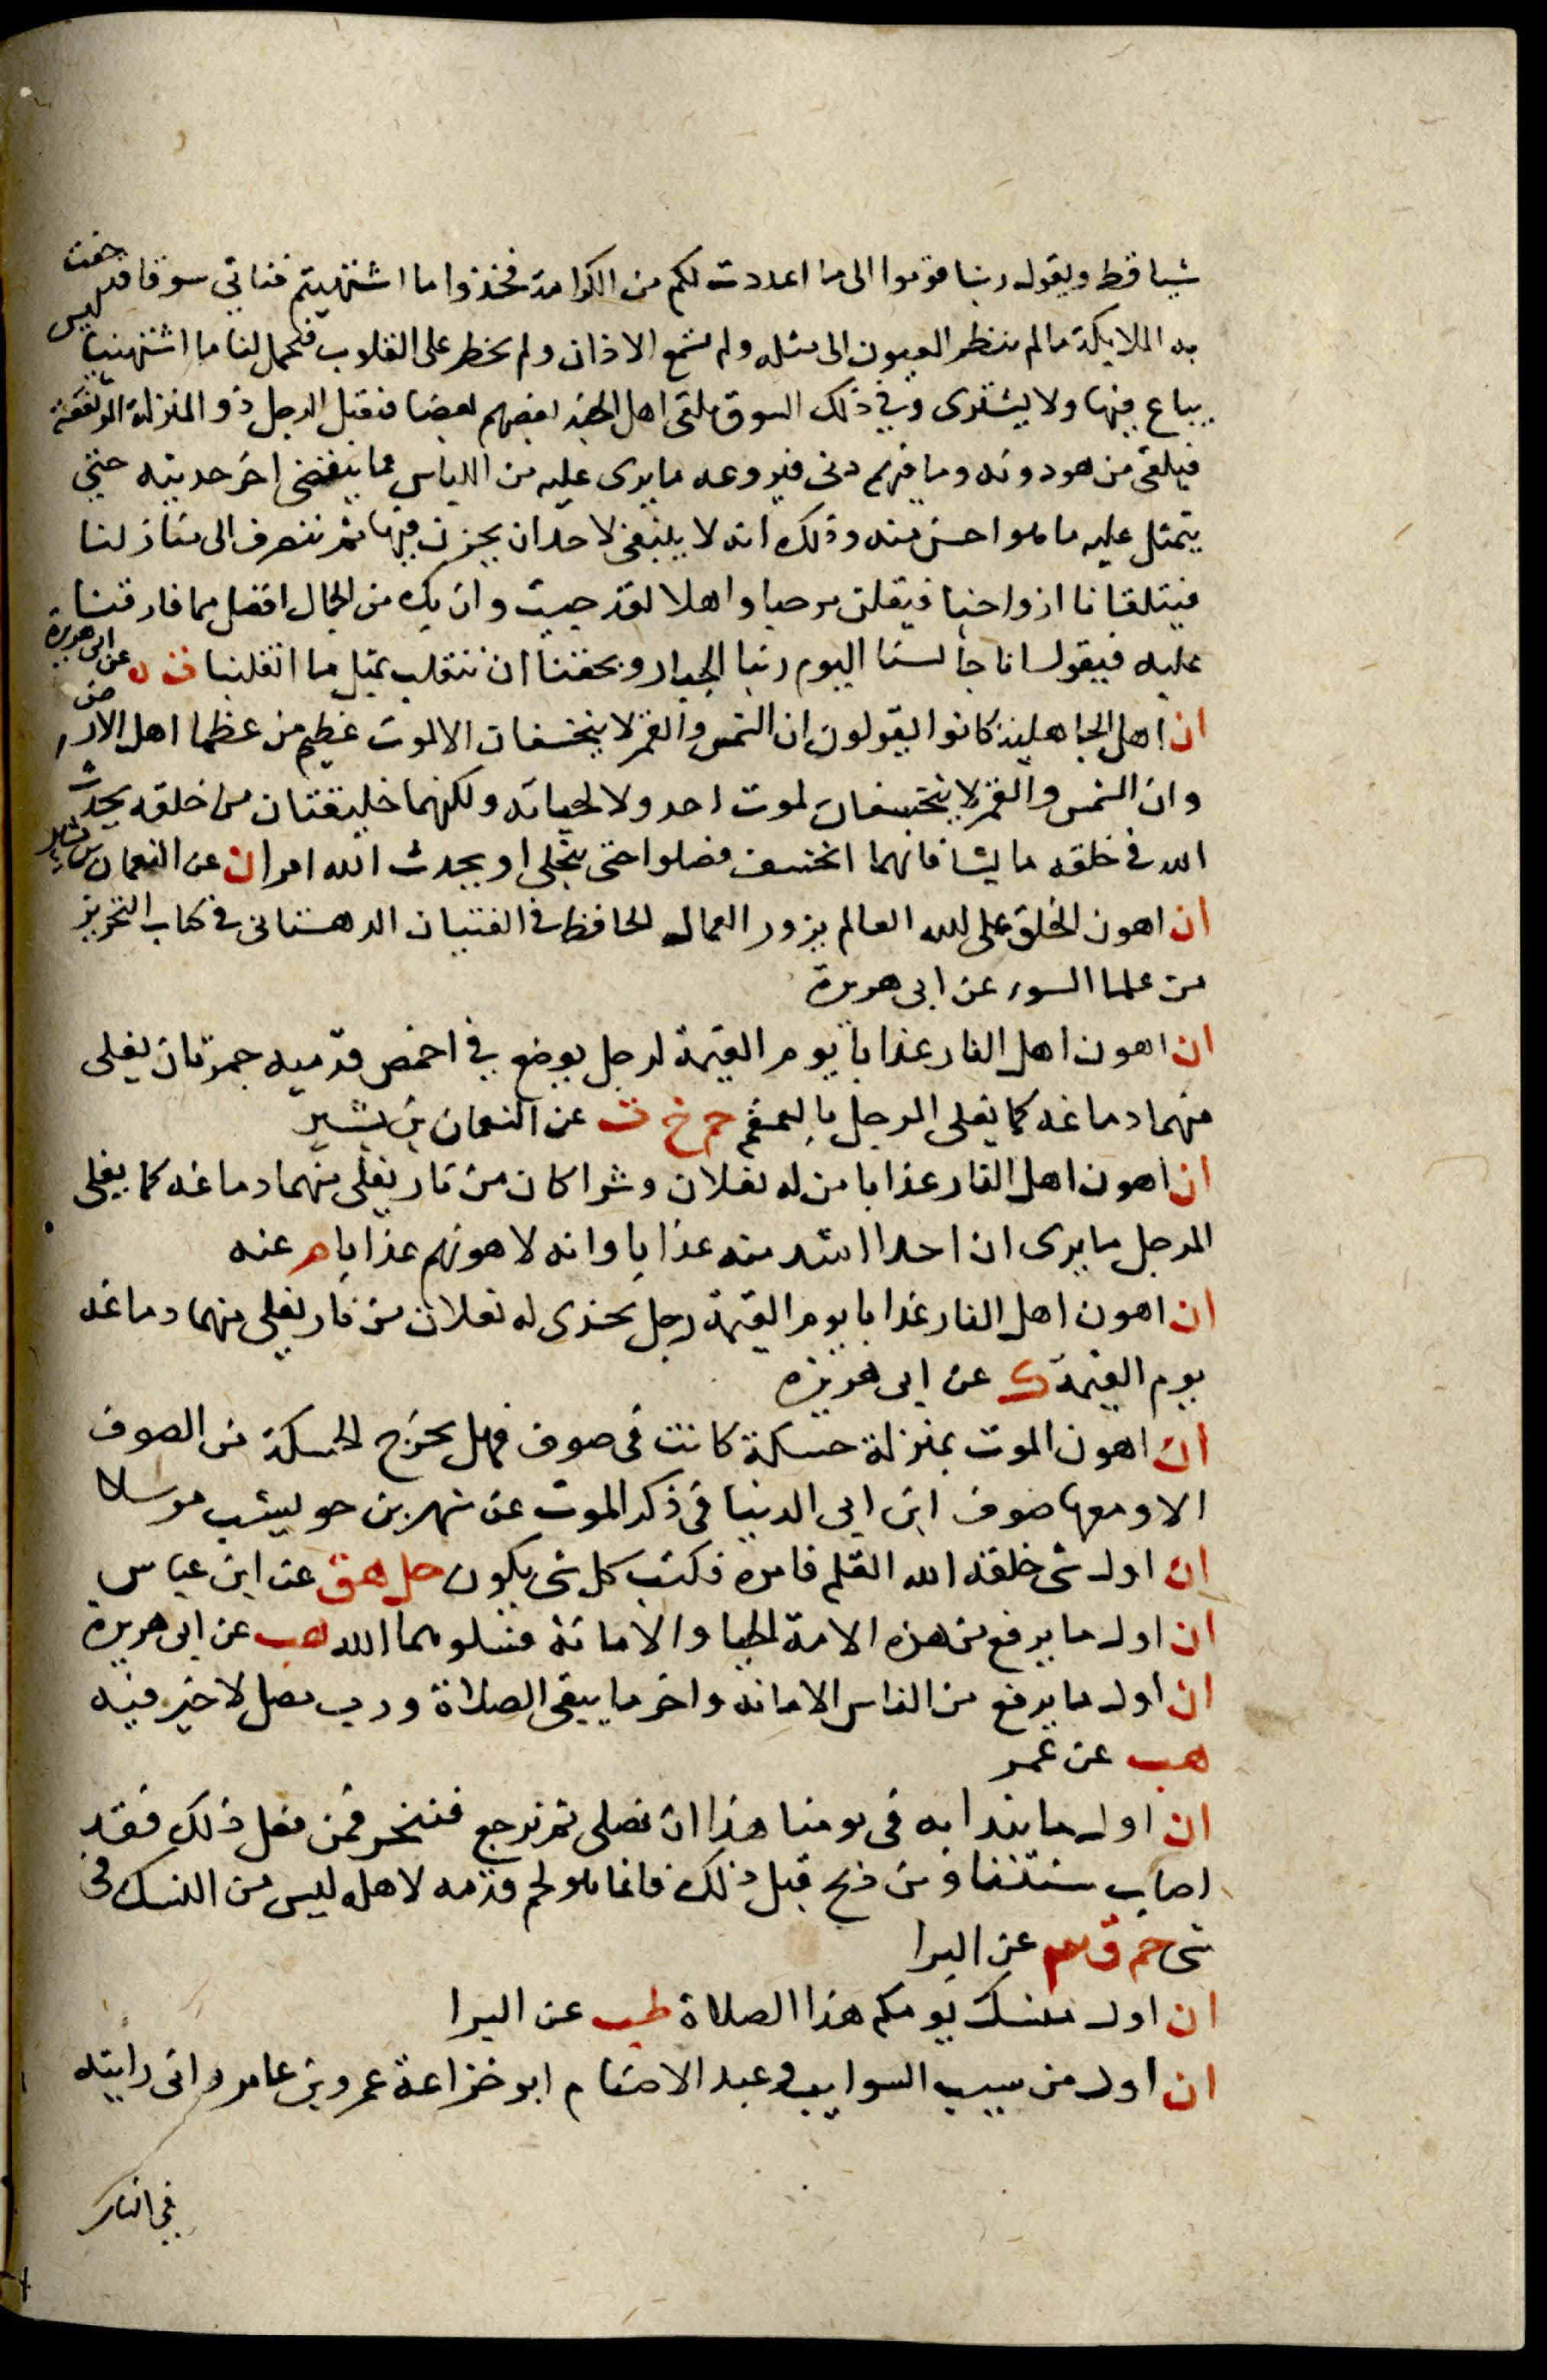 شيا قط ويقول ربنا قوموا الى ما اعددت لكم من الكرامة فخذوا ما اشتهيتم فناتي سوقا قد حفت
به الملايكة ما لم تنظر العيون الى مثله ولم تسمع الاذان ولم يخطر على القلوب فيحمل لنا ما اشتهينا ليس
يباع فيها ولا يشترى وفي ذلك السوق يلقى اهل الجنة بعضهم بعضا فيقبل الرجل ذو المنزلة المرتفعة
فيلقى من هو دونه وما فيهم دنى فيروعه ما يرى عليه من اللباس فما ينقضي اخر حديثه حتى
يتمثل عليه ما هو احسن منه وذلك انه لا ينبغي لاحد ان يحزن فيها ثم ننصرف الى منازلنا
فيتلقانا ازواجنا فيقلن مرحبا واهلا لقد جيت وان بك من الجمال افضل مما فارقتنا
عليه فيقول انا جالسنا اليوم ربنا الجبار وبحقنا ان ننقلب بمثل ما انقلبنا ت ه عن ابى هريرة
ان اهل الجاهلية كانوا يقولون ان الشمس والقمر لا ينخسفان الا لموت عظيم من عظما اهل الارض
وان الشمس والقمر لا ينخسفان لموت احد ولا لحياته ولكنهما خليقتان من خلقه يحدث
الله في خلقه ما يشا فايهما انخسف فصلوا حتى ينجلي او يحدث الله امرا ن عن النعمان بن بشير
ان اهون الخلق على الله العالم يزور العمال الحافظ في الفتيان الدهستانى في كتاب التحرير
من علما السوء عن ابى هريرة
ان اهون اهل النار عذابا يوم القيمة لرجل يوضع في اخمص قدميه جمرتان يغلى
منهما دماغه كما يغلى المرجل بالقمقم حم خ ت عن النعمان بن بشير
ان اهون اهل النار عذابا من له نعلان وشراكان من نار يغلى منهما دماغه كما يغلى
المرجل ما يرى ان احدا اشد منه عذابا وانه لاهونهم عذابا م عنه
ان اهون اهل النار عذابا يوم القيمة رجل يحذى له نعلان من نار يغلى منهما دماغه
يوم القيمة ك عن ابى هريرة
ان اهون الموت بمنزلة حسكة كانت في صوف فهل يخرج الحسكة من الصوف
الا ومعها صوف ابن ابى الدنيا في ذكر الموت عن شهر بن حوشب مرسلا
ان اول شى خلقه الله القلم فامره فكتب كل شى يكون حل هق عن ابن عباس
ان اول ما يرفع من هذه الامة الحيا والامانة فسلوهما الله هب عن ابى هريرة
ان اول ما يرفع من الناس الامانه واخر ما يبقى الصلاة ورب مصل لا خير فيه
هب عن عمر
ان اول ما نبدا به في يومنا هذا ان نصلى ثم نرجع فننحر فمن فعل ذلك فقد
اصاب سنتنا ومن ذبح قبل ذلك فانما هو لحم قدمه لاهله ليس من النسك في
شى حم ق عن البرا
ان اول منسك يومكم هذا الصلاة طب عن البرا
ان اول من سيب السوايب وعبد الاصنام ابو خزاعة عمرو بن عامر وانى رايته
في النار